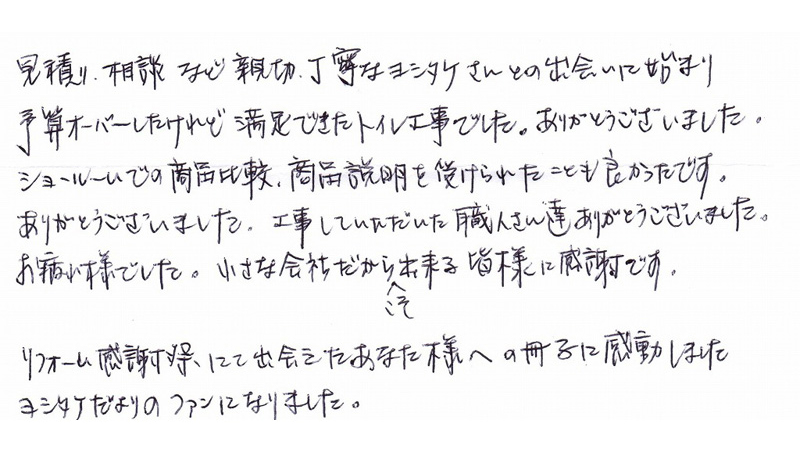 見積り、相談など親切、丁寧なヨシタケさんとの出会いに始まり
予算オーバーしたけれど満足できたトイレ工事でした。ありがとうございました。
ショールームでの商品比較、商品説明を受けられたことも良かったです。
ありがとうございました。工事していただいた職人さん達ありがとうございました。
お疲れ様でした。小さな会社だからこそ出来る皆様に感謝です。
リフォーム感謝祭、にて出会えたあなた様への冊子に感動しました
ヨシタケだよりのファンになりました。